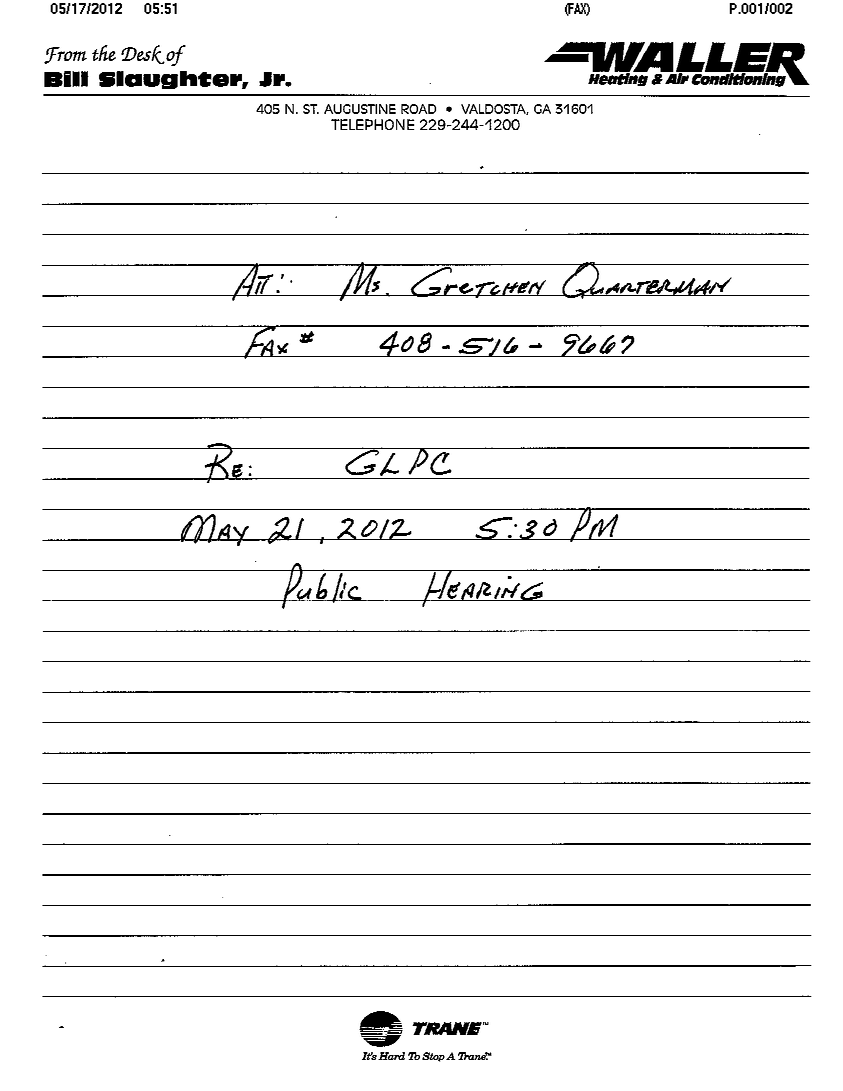 05/17/2012 05:51 (FAX) P.001/002
From the Desk of
Bill Slaughter, Jr.
WALLER
Heating & Air Conditioning
405 N. ST. AUGUSTINE ROAD • VALDOSTA, GA 31601
TELEPHONE 229-244-1200
ATT: Ms. GRETCHEN QUARTERMAN
FAX # 408-516-9667
RE: GLPC
MAY 21, 2012 5:30 PM
Public HEARING
TRANE™
It's Hard To Stop A Trane.™